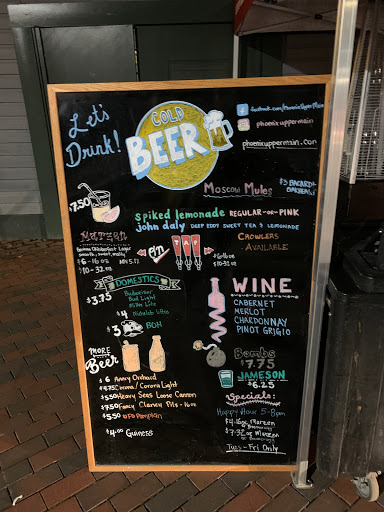 Let's
Drink!
COLD
BEER
facebook.com/PhoenixUpperMain
phoenixuppermain
phoenixuppermain.com
Moscow Mules
$7.50
spiked lemonade REGULAR-OR-PINK
john daly DEEP EDDY SWEET TEA & LEMONADE
CROWLERS
AVAILABLE
MARZEN
German Oktoberfest Lager
smooth, sweet, malty
$6 - 16 oz ABV 5.1%
$10 - 32 oz
ON TAP
$6-16 oz
$10-32 oz
DOMESTICS
$3.75
Budweiser
Bud Light
Miller Lite
$4 Michelob Ultra
$3 BOH
WINE
CABERNET
MERLOT
CHARDONNAY
PINOT GRIGIO
MORE
Beer
$6 Angry Orchard
$4.75 Corona/Corona Light
$5.50 Heavy Seas Loose Cannon
$7.50 Fancy Clancy Pils - 16oz
$5.50 UFO Pumpkin
$4.00 Guiness
Bombs
$7.75
JAMESON
$6.25
Specials:
Happy Hour 5-8pm
Tues - Fri Only